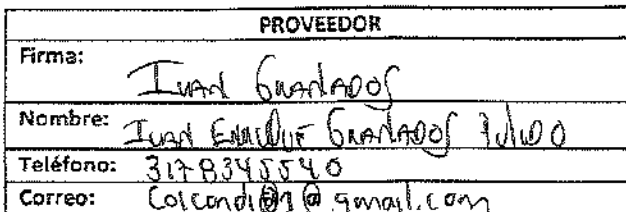 PROVEEDOR
Firma: IVAN GRANADOS
Nombre: IVAN ENRIQUE GRANADOS PULIDO
Teléfono: 3178345540
Correo: @gmail.com